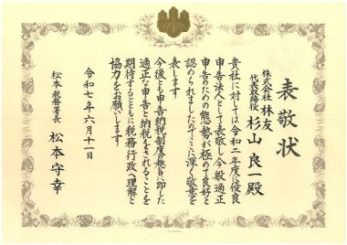 表敬状
株式会社 林友
代表取締役 杉山 良一殿
貴社に対しては令和二年度に優良
申告法人として表敬し今般適正
申告のための態勢が極めて良好と
認められましたのでここに深く敬意を
表します
今後とも申告納税制度の趣旨に即した
適正な申告と納税をされることを
期待するとともに税務行政へ理解と
協力をお願いします
令和七年六月十一日
松本税務署長 松本守幸